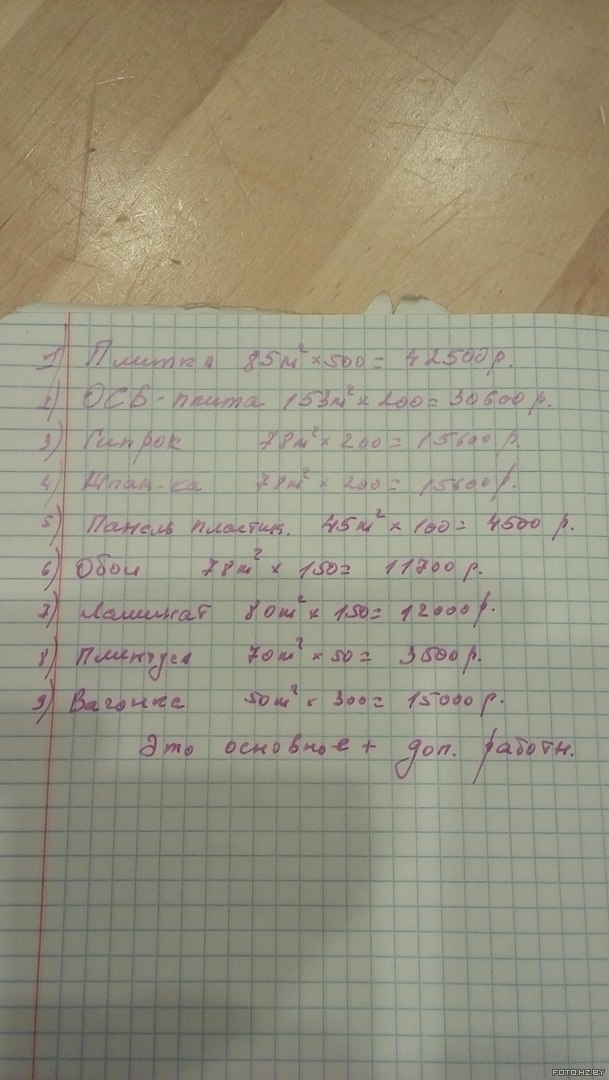 1) Плитка 85м² × 500 = 42500р.
2) ОСБ-плита 153м² × 200 = 30600р.
3) Гипрок 78м² × 200 = 15600р.
4) Шпак-ка 78м² × 200 = 15600р.
5) Панель пластик. 45м² × 100 = 4500 р.
6) Обои 78м² × 150 = 11700р.
7) Ламинат 80м² × 150 = 12000р.
8) Плинтуса 70м² × 50 = 3500р.
9) Вагонка 50м² × 300 = 15000р.
Это основное + доп. работы.
FOTO.HZ.BY